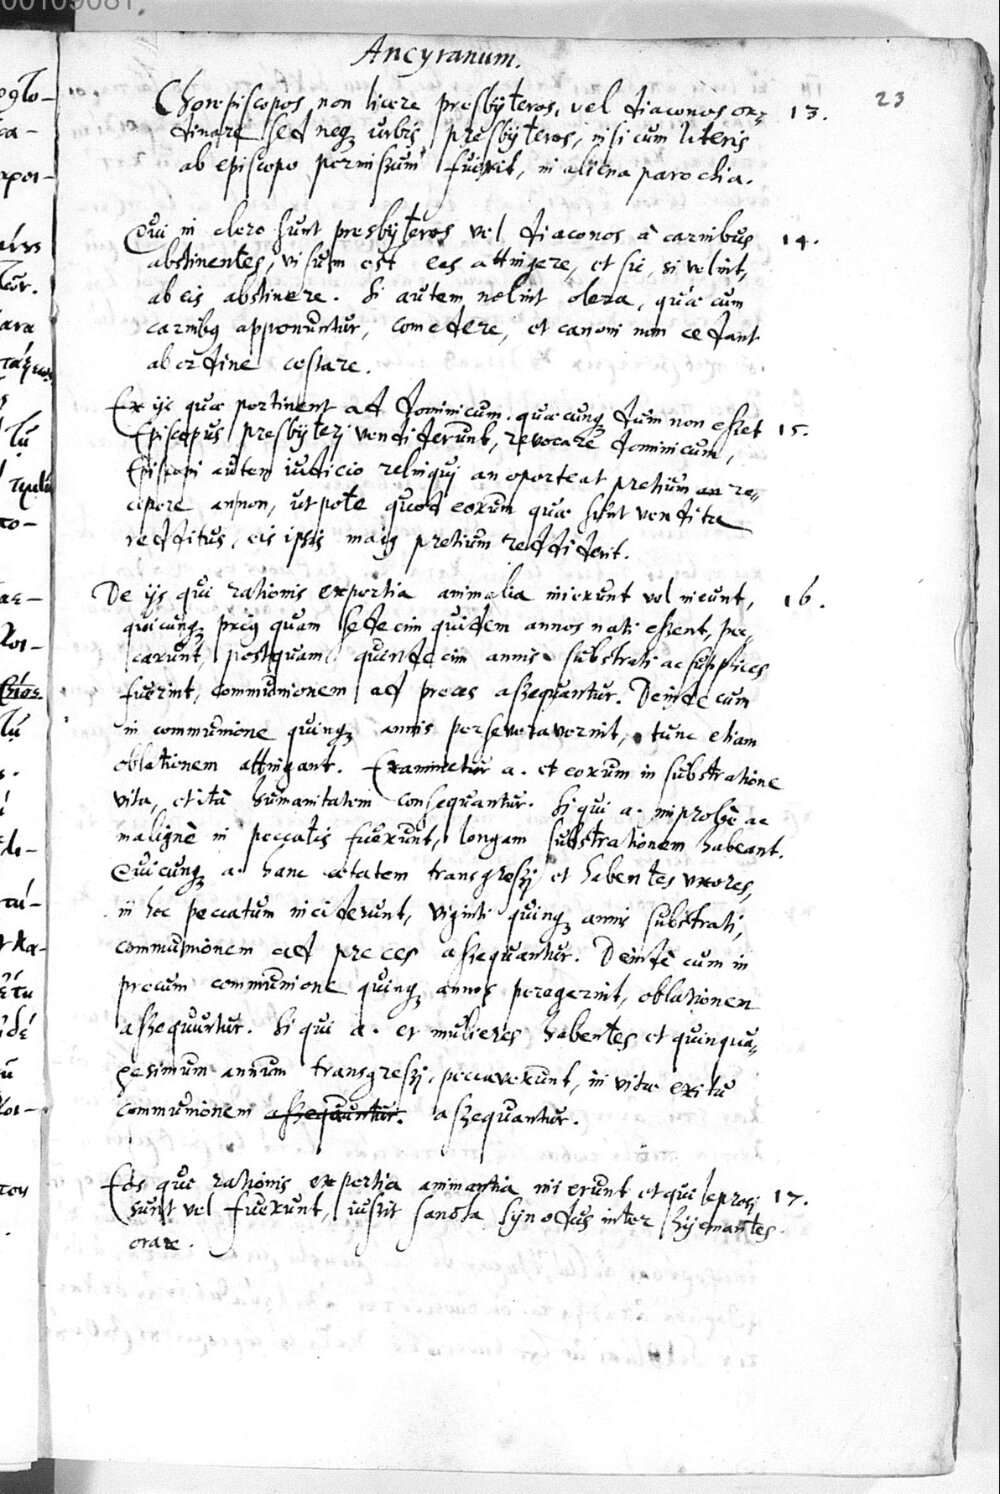 00109081
Ancyranum.
23
Chorepiscopos, non licere presbyteros, vel diaconos or= 13.
dinare sed neq; urbis presbyteros, nisi cum literis
ab episcopo permissum fuerit, in aliena parochia.
Qui in clero sunt presbyteros vel diaconos à carnibus 14.
abstinentes, visum est eas attingere, et sic, si velint,
ab eis abstinere. Si autem nolint olera, quae cum
carnibq apponuntur, comedere, et canoni non cedant
ab ordine cessare.
Ex ijs quae pertinent ad dominicum, quaecunq; dum non esset 15.
Episcopus presbyteri vendiderunt, revocare dominicum,
Episcopi autem iudicio relinqui an oporteat pretium an re=
cipere annon, utpote quod eorum quae sunt vendita
redditus, eis ipsis maiq pretium reddiderit.
De ijs qui rationis expertia animalia inierunt vel ineunt, 16.
quicunq; priq quam sedecim quidem annos nati essent, pec=
carunt, postquam quindecim annis substrati ac supplices
fuerint, communionem ad preces assequantur. Deinde cum
in communione quinq; annis perseveraverint, tunc etiam
oblationem attingant. Examinetur a. et eorum in substratione
vita, et ità humanitatem consequantur. Si qui a. improbè ac
malignè in peccatis fuerunt, longam substrationem habeant.
Quicunq; a. hanc aetatem transgressi et habentes uxores,
in hoc peccatum inciderunt, viginti quinq; annis substrati,
communionem ad preces assequantur. Deinde cum in
precum communione quinq; annos peregerint, oblationem
assequuntur. Si qui a. et mulieres habentes et quinqua=
gesimum annum transgressi, peccaverunt, in vitae exitu
communionem assequuntur. assequantur.
Eos qui rationis expertia animantia inierunt et qui leprosi 17.
sunt vel fuerunt, iussit sancta synodus inter hyemantes
orare.